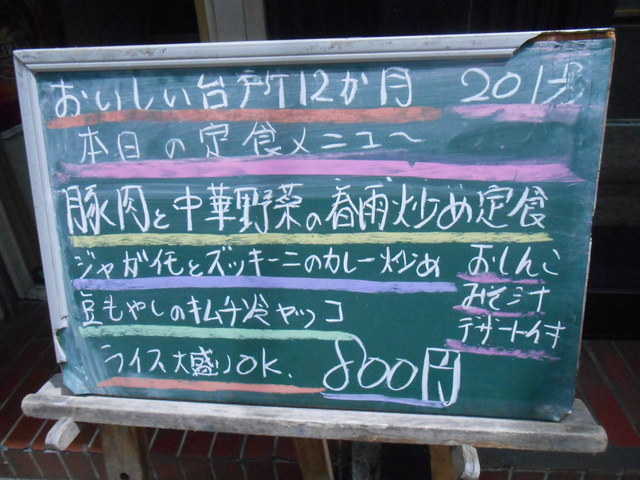 おいしい台所12か月
本日の定食メニュ〜
豚肉と中華野菜の春雨炒め定食
ジャガイモとズッキーニのカレー炒め
おしんこ
みそ汁
デザート付き
豆もやしのキムチ冷ヤッコ
ライス大盛りOK.
800円